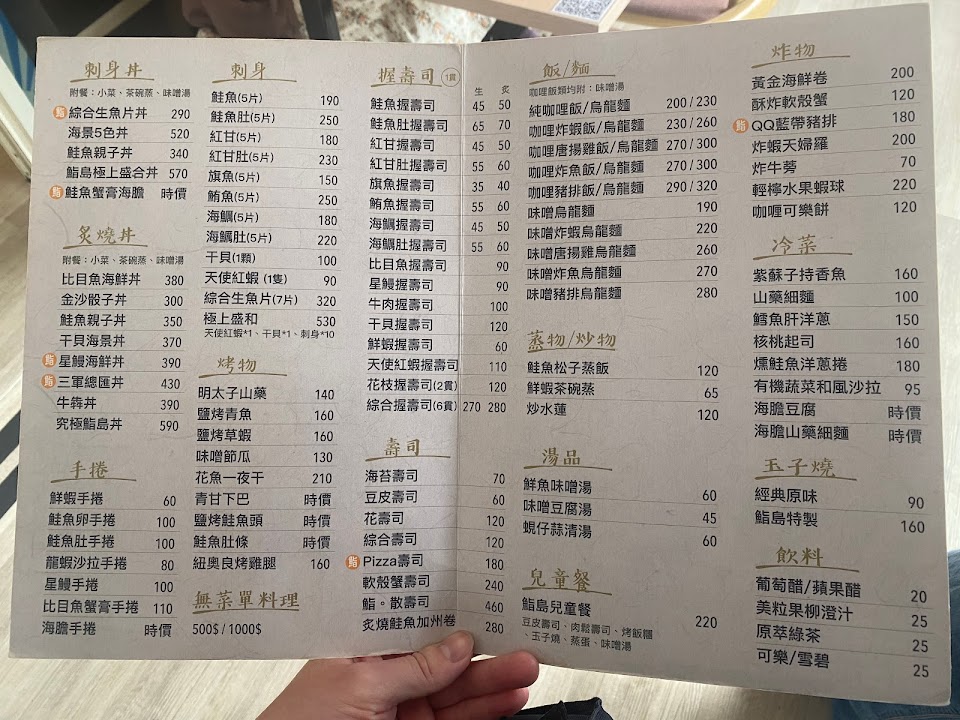 刺身丼
附餐：小菜、茶碗蒸、味噌湯
鮨 綜合生魚片丼 290
海景5色丼 520
鮭魚親子丼 340
鮨島極上盛合丼 570
鮨 鮭魚蟹膏海膽 時價
炙燒丼
附餐：小菜、茶碗蒸、味噌湯
比目魚海鮮丼 380
金沙骰子丼 300
鮭魚親子丼 350
干貝海景丼 370
鮨 星鰻海鮮丼 390
鮨 三軍總匯丼 430
牛犇丼 390
究極鮨島丼 590
手捲
鮮蝦手捲 60
鮭魚卵手捲 100
鮭魚肚手捲 100
龍蝦沙拉手捲 80
星鰻手捲 100
比目魚蟹膏手捲 110
海膽手捲 時價
刺身
鮭魚(5片) 190
鮭魚肚(5片) 250
紅甘(5片) 180
紅甘肚(5片) 230
旗魚(5片) 150
鮪魚(5片) 250
海鱺(5片) 180
海鱺肚(5片) 220
干貝(1顆) 100
天使紅蝦 (1隻) 90
綜合生魚片(7片) 320
極上盛和 530
天使紅蝦*1、干貝*1、刺身*10
烤物
明太子山藥 140
鹽烤青魚 160
鹽烤草蝦 160
味噌節瓜 130
花魚一夜干 210
青甘下巴 時價
鹽烤鮭魚頭 時價
鮭魚肚條 時價
紐奧良烤雞腿 160
無菜單料理
500$ / 1000$
握壽司 1貫
生 炙
鮭魚握壽司 45 50
鮭魚肚握壽司 65 70
紅甘握壽司 45 50
紅甘肚握壽司 55 60
旗魚握壽司 35 40
鮪魚握壽司 55 60
海鱺握壽司 45 50
海鱺肚握壽司 55 60
比目魚握壽司 90
星鰻握壽司 90
牛肉握壽司 100
干貝握壽司 120
鮮蝦握壽司 60
天使紅蝦握壽司 110
花枝握壽司(2貫) 120
綜合握壽司(6貫) 270 280
壽司
海苔壽司 70
豆皮壽司 60
花壽司 120
綜合壽司 120
鮨 Pizza壽司 180
軟殼蟹壽司 240
鮨。散壽司 460
炙燒鮭魚加州卷 280
飯/麵
咖哩飯類均附：味噌湯
純咖哩飯/烏龍麵 200 / 230
咖哩炸蝦飯/烏龍麵 230 / 260
咖哩唐揚雞飯/烏龍麵 270 / 300
咖哩炸魚飯/烏龍麵 270 / 300
咖哩豬排飯/烏龍麵 290 / 320
味噌烏龍麵 190
味噌炸蝦烏龍麵 220
味噌唐揚雞烏龍麵 260
味噌炸魚烏龍麵 270
味噌豬排烏龍麵 280
蒸物/炒物
鮭魚松子蒸飯 120
鮮蝦茶碗蒸 65
炒水蓮 120
湯品
鮮魚味噌湯 60
味噌豆腐湯 45
蜆仔蒜清湯 60
兒童餐
鮨島兒童餐 220
豆皮壽司、肉鬆壽司、烤飯糰
、玉子燒、蒸蛋、味噌湯
炸物
黃金海鮮卷 200
酥炸軟殼蟹 120
鮨 QQ藍帶豬排 180
炸蝦天婦羅 200
炸牛蒡 70
輕檸水果蝦球 220
咖喱可樂餅 120
冷菜
紫蘇子持香魚 160
山藥細麵 100
鱈魚肝洋蔥 150
核桃起司 160
燻鮭魚洋蔥捲 180
有機蔬菜和風沙拉 95
海膽豆腐 時價
海膽山藥細麵 時價
玉子燒
經典原味 90
鮨島特製 160
飲料
葡萄醋/蘋果醋 20
美粒果柳澄汁 25
原萃綠茶 25
可樂/雪碧 25